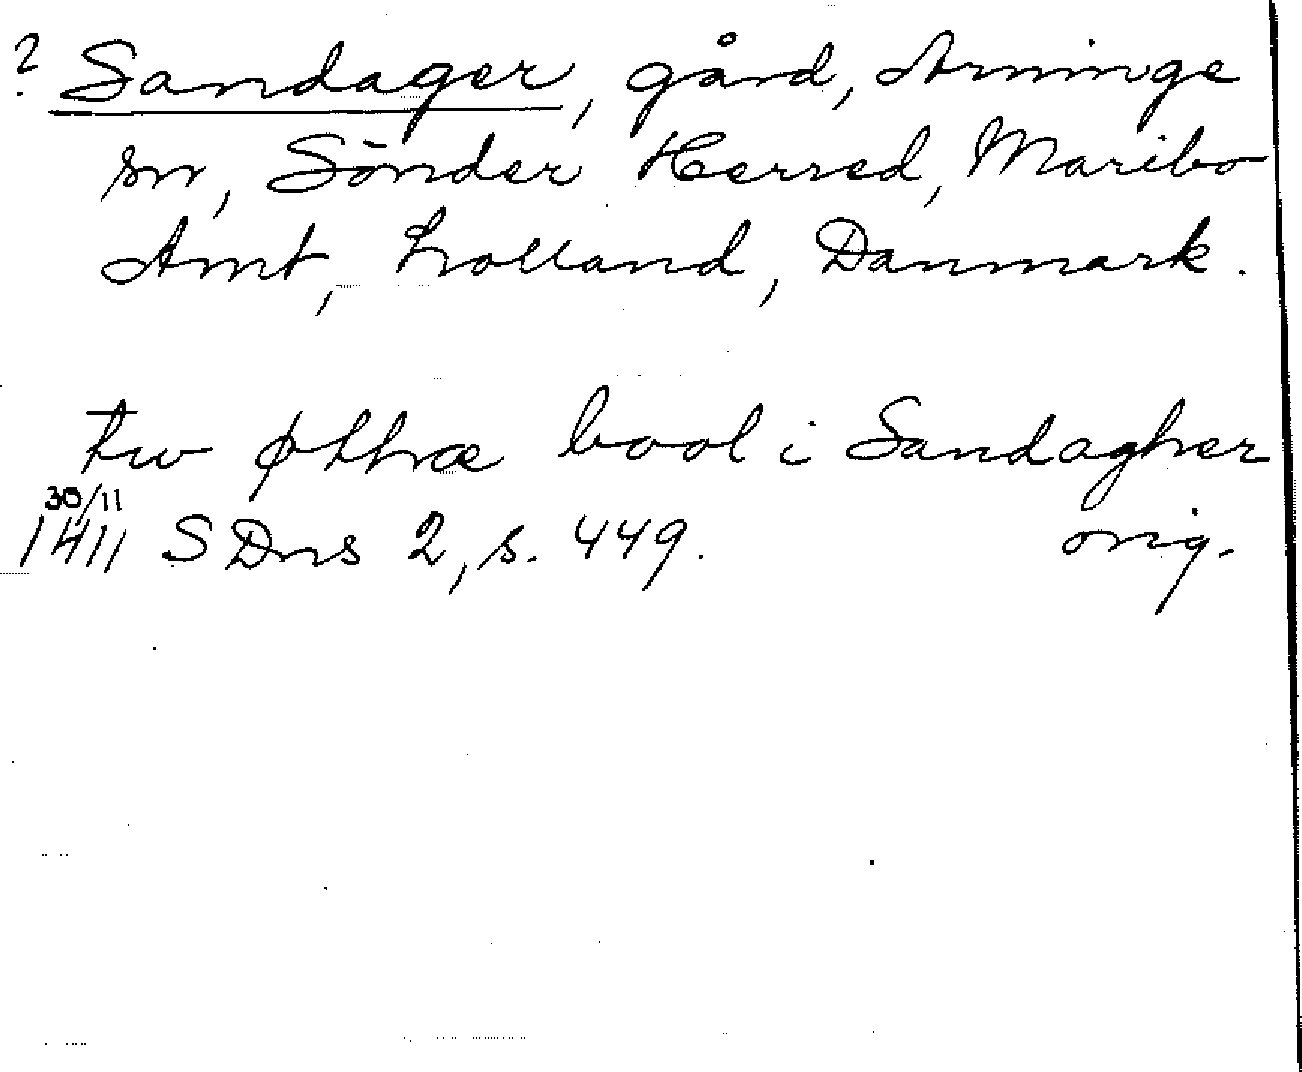 ? Sandager, gård, Arninge
sn, Sönder Herred, Maribo
Amt, Lolland, Danmark.
tw øthræ bool i Sandagher
30/11
1411 SDns 2, s. 449. orig.